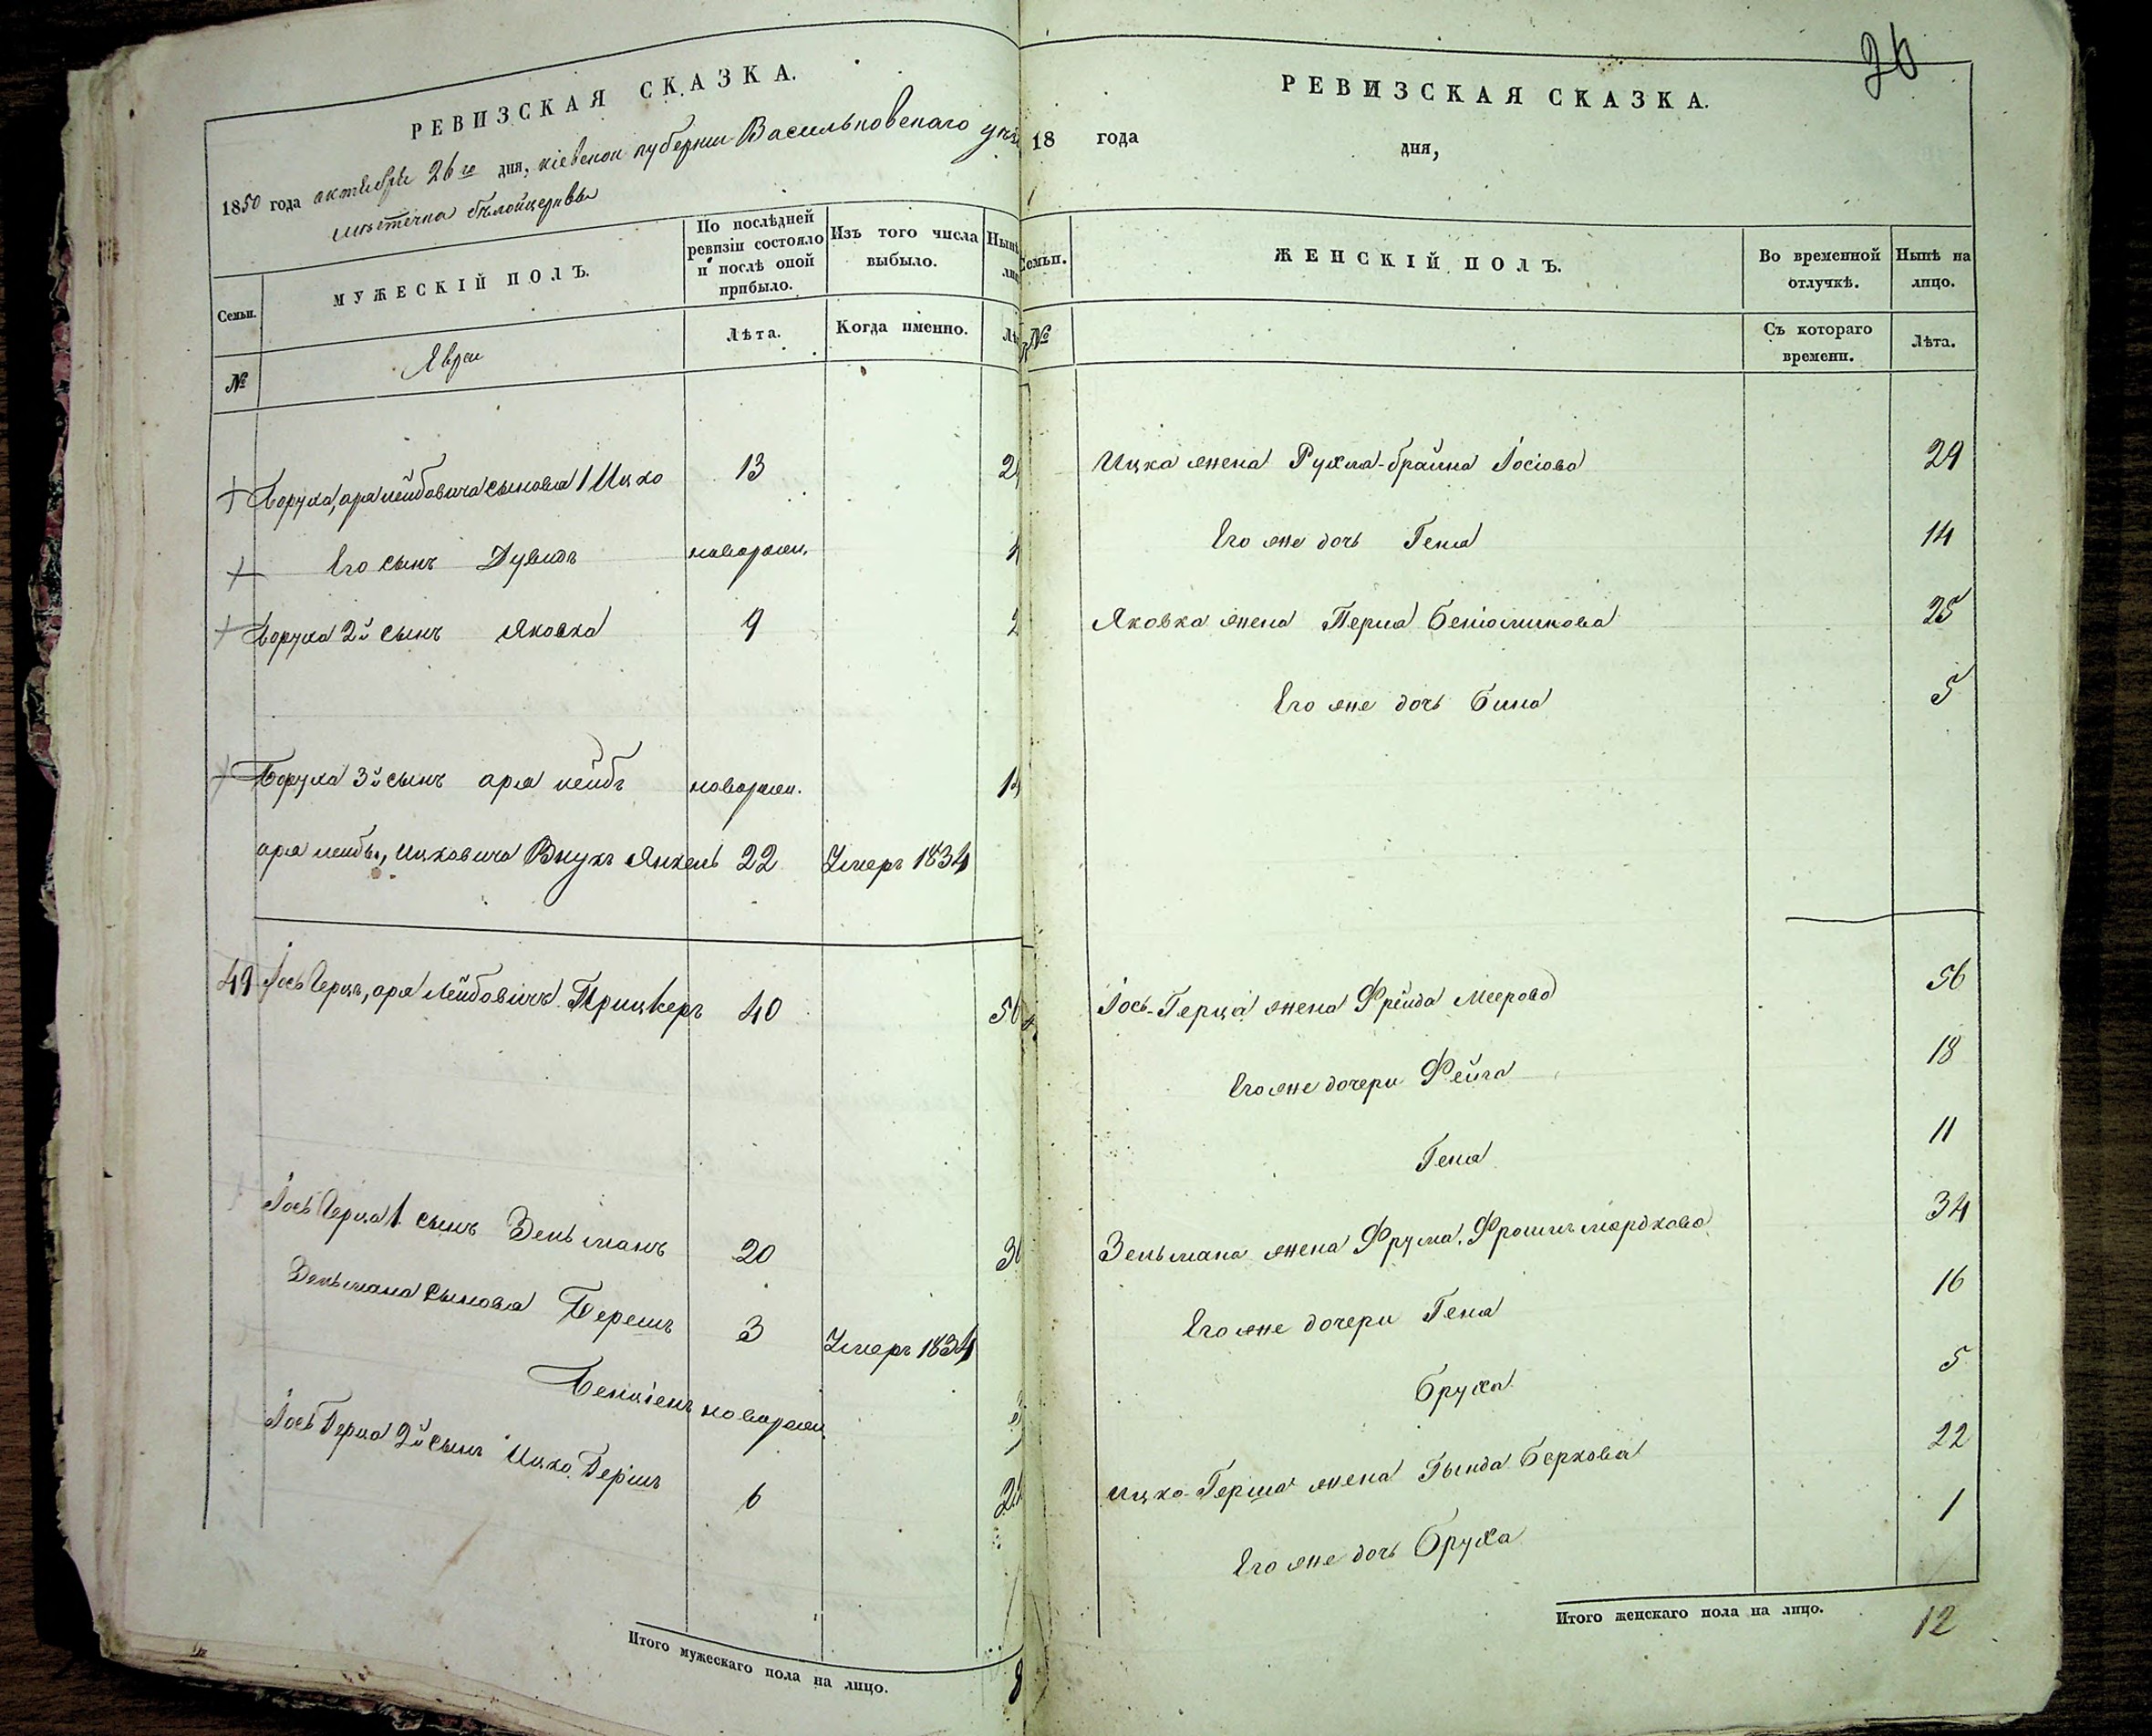 РЕВИЗСКАЯ СКАЗКА.
1850 года октября 26го дня, кіевской губерніи Васильковскаго
мѣстечка бѣлойцеркви
Семьи.
МУЖЕСКІЙ ПОЛЪ.
По послѣдней ревизіи состояло и послѣ оной прибыло.
Изъ того числа выбыло.
№
Евреи
Лѣта.
Когда именно.
Боруха, аря лейбовича сыновья 1 Ицко 13
Его сынъ Дувидъ новорожд.
Боруха 2й сынъ Яковка 9
Боруха 3й сынъ аря лейбъ новорожд.
аря лейбы, Ицковича Внукъ Янкель 22 Умеръ 1834
49 Іось Герцъ, аря лейбовичъ Прицкеръ 40 56
Іось Герца 1 сынъ Зельманъ 20 36
Зельмана сыновья Берешъ 3 Умеръ 1834
Бенціенъ новорожд.
Іось Герца 2й сынъ Ицко Гершъ 6
Итого мужескаго пола на лицо. 8
26
РЕВИЗСКАЯ СКАЗКА.
18 года дня,
Семьи.
ЖЕНСКІЙ ПОЛЪ.
Во временной отлучкѣ.
Нынѣ на лицо.
№
Съ котораго времени.
Лѣта.
Ицка жена Рухля-брайна Іосіова 29
Его же дочь Геня 14
Яковка жена Перля Беніоминова 25
Его же дочь Бина 5
Іось-Герца жена Фрейда Меерова 56
Его же дочери Фейга 18
Геня 11
Зельмана жена Фрума Мордкова 34
Его же дочери Геня 16
Бруха 5
Ицко-Герша жена Гында Беркова 22
Его же дочь Бруха 1
Итого женскаго пола на лицо. 12